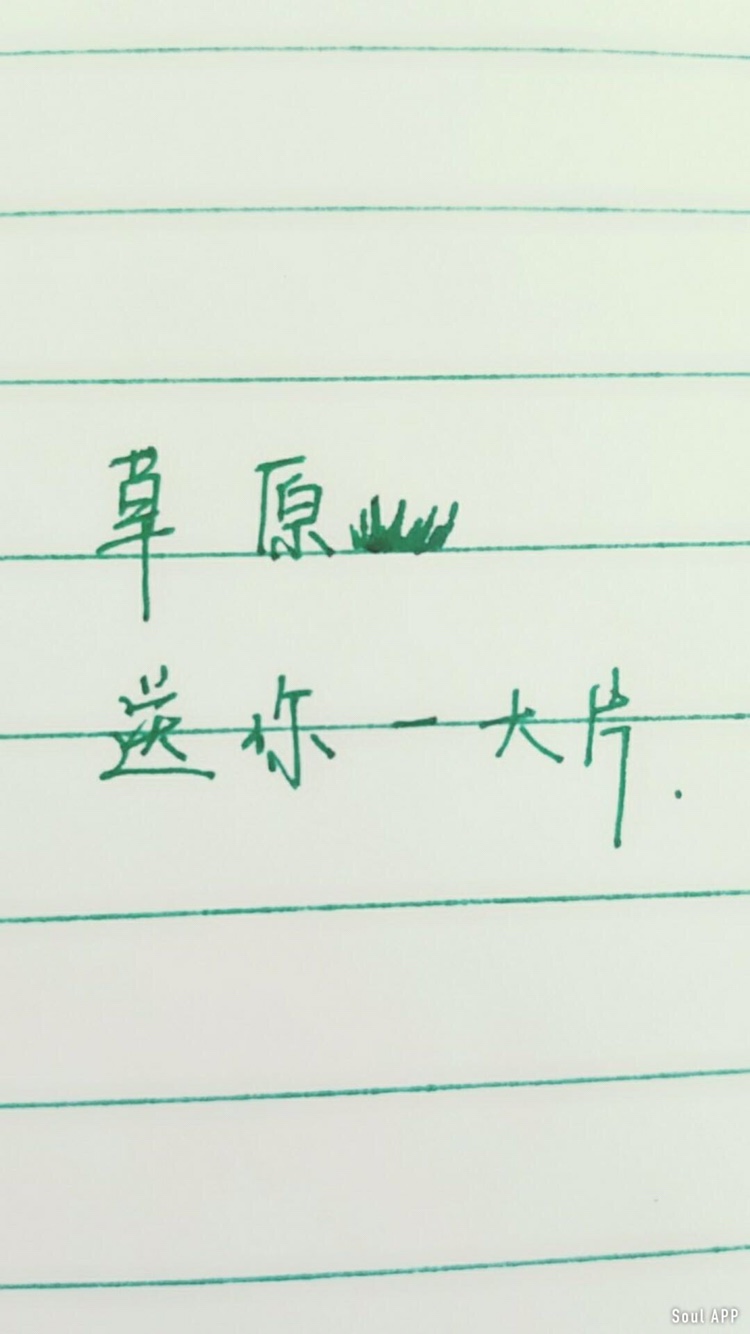 草原
送你一大片.
Soul APP